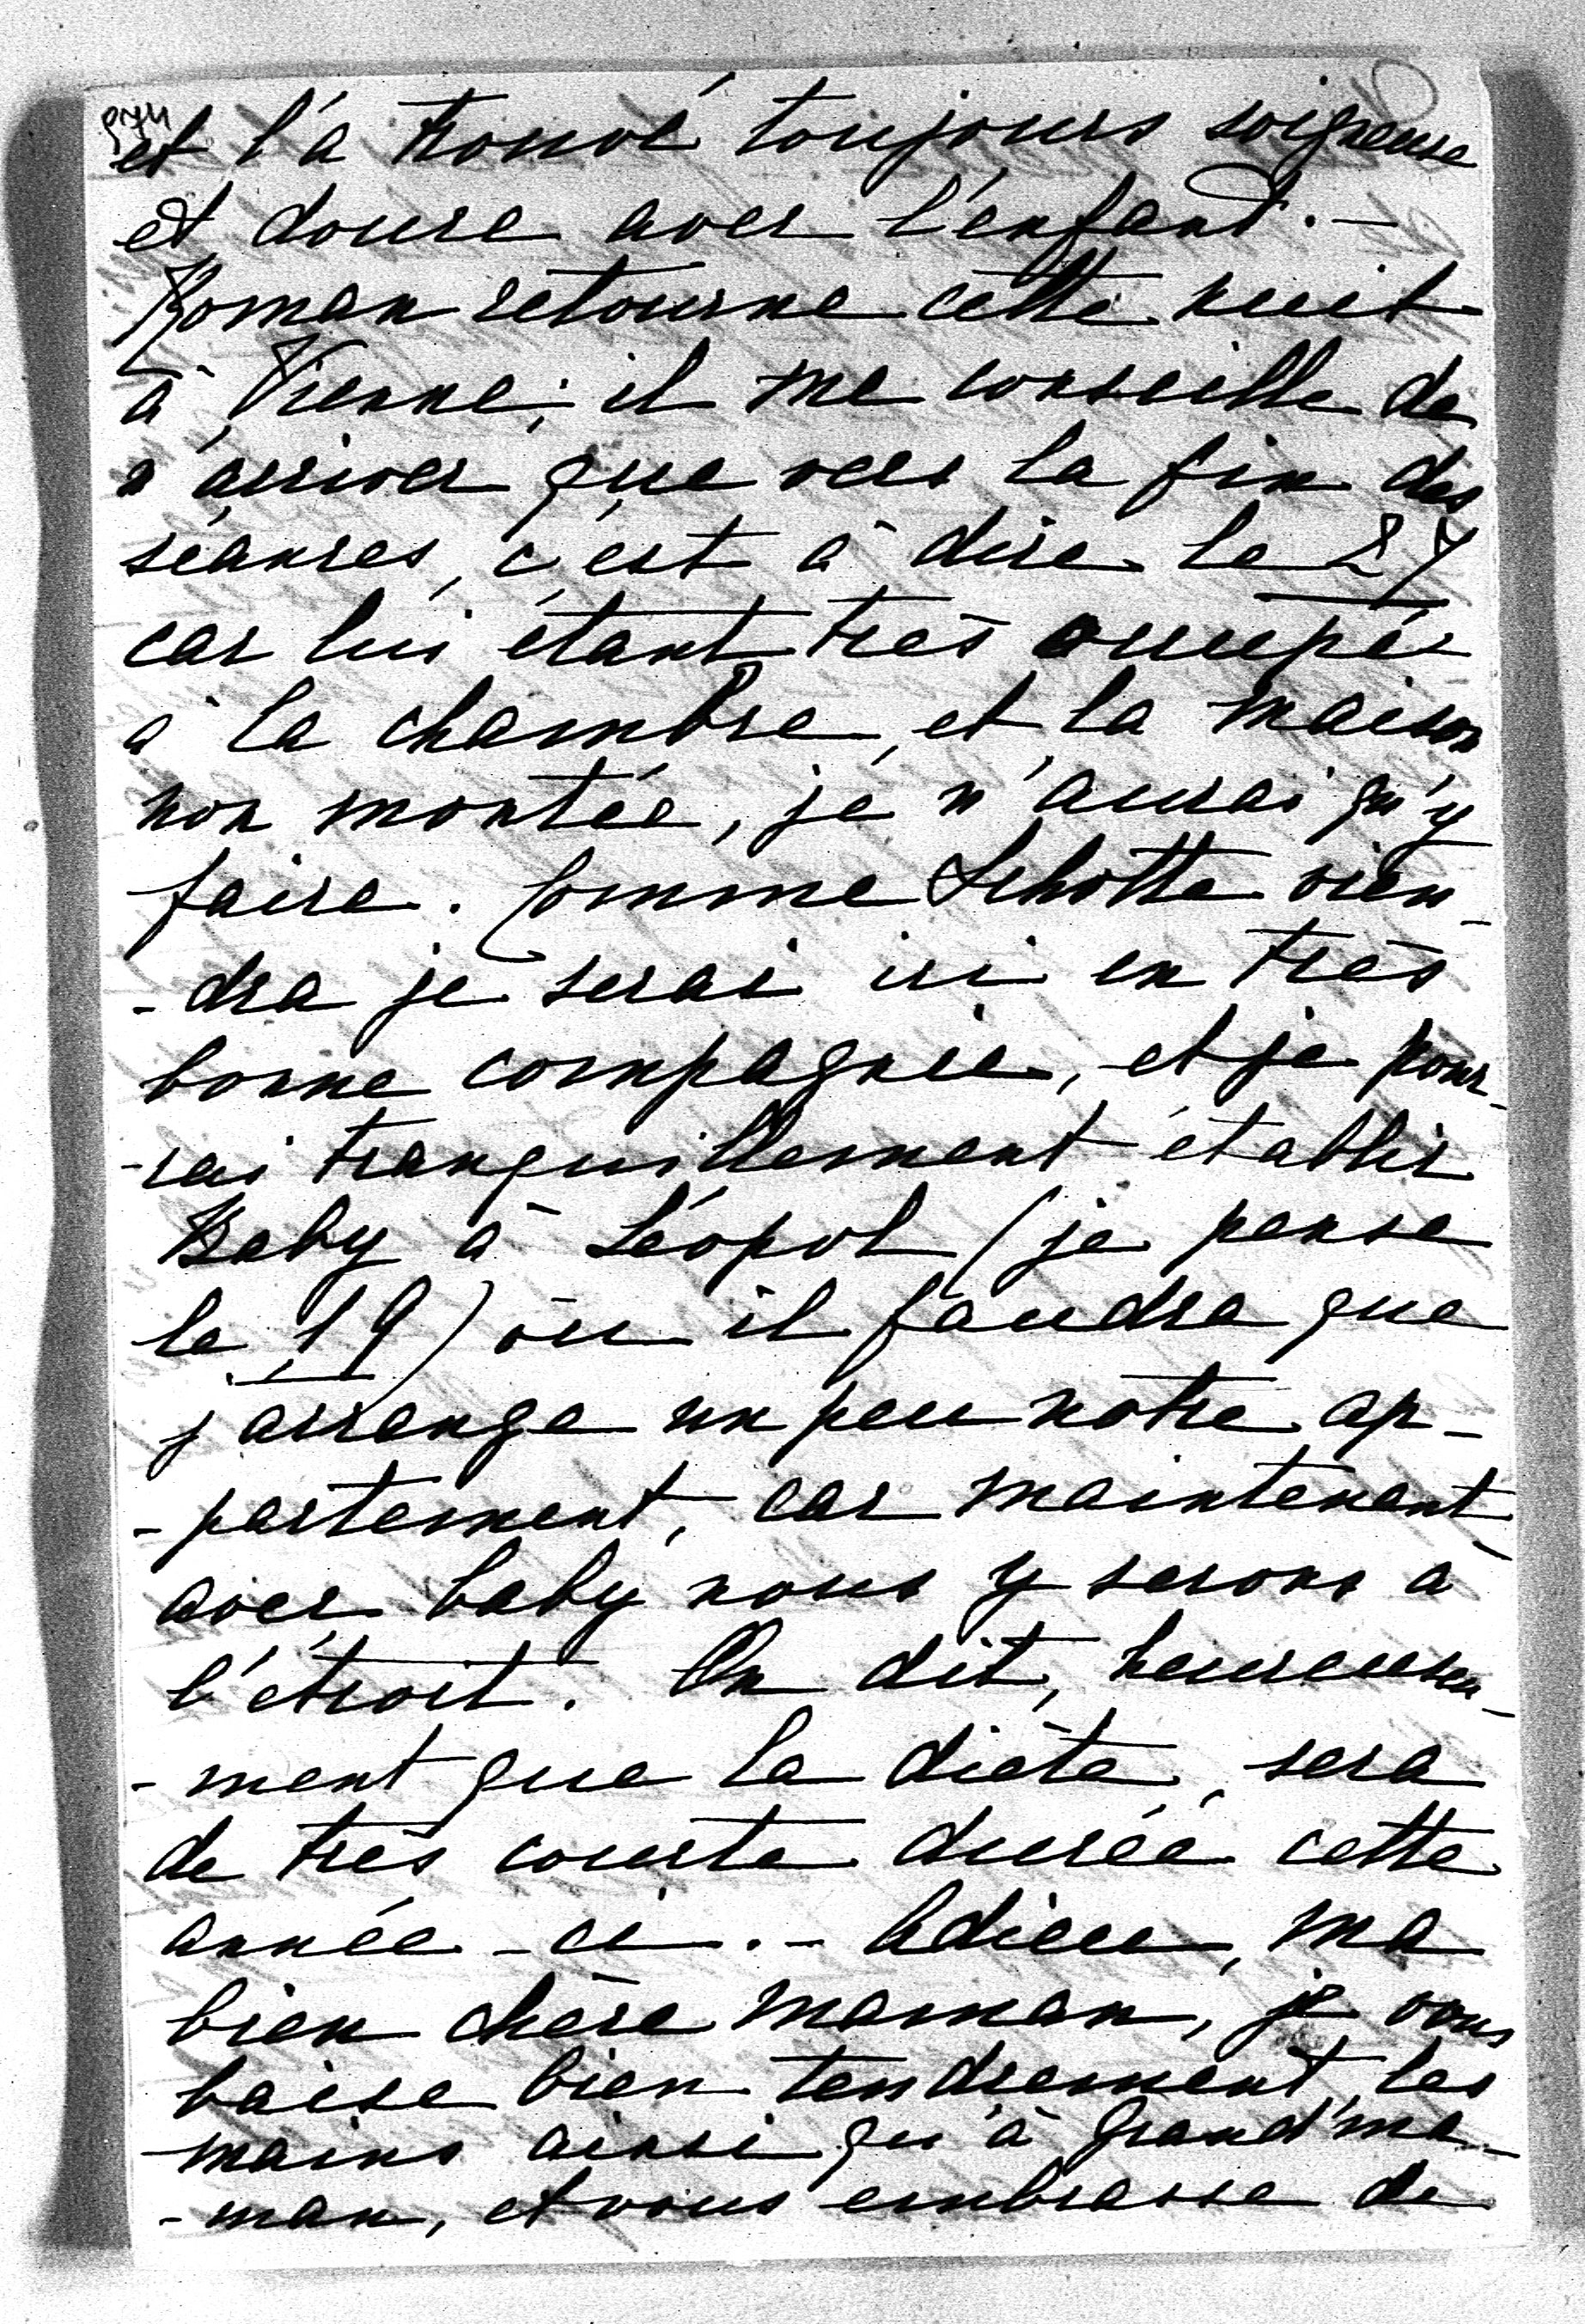 et l'a trouvé toujours soigneuse
et douce avec l'enfant. –
Roman retourne cette nuit
à Vienne; il me conseille de
n'arriver que vers la fin des
séances, c'est à dire le 27
car lui étant très occupé
à la chambre, et la maison
non montée, je n'aurai qu'y
faire. Comme Lchotte vien-
-dra je serai ici en très
bonne compagnie, et je pour-
-rai tranquillement établir
Baby à Léopol (je pense
le 19) où il faudra que
j'arrange un peu notre ap-
-partement, car maintenant
avec baby nous y serons à
l'étroit. On dit, heureuse-
-ment que la diète, sera
de très courte durée cette
année-ci. – Adieu, ma
bien chère maman, je vous
baise bien tendrement les
mains ainsi qu'à Grand'ma-
-man, et vous embrasse de